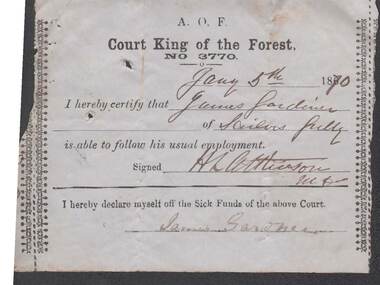 A. O. F.
Court King of the Forest,
NO 3770.
Jany 5th 1880
I hereby certify that James Gardiner
of Sailors Gully
is able to follow his usual employment.
Signed H L Atkinson
I hereby declare myself off the Sick Funds of the above Court.
James Gardner